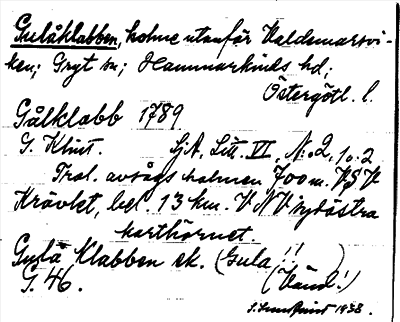 Gulåklabben, holme utanför Valdemarsvi-
ken; Gryt sn; Hammarkinds hd;
Östergötl. l.
Gålklabb 1789.
G. Klint. Sj.A. Litt. VI, N:o 2, 1o. 2
Trol. avsågs holmen 700 m. VSV
Krävlet, bel. 13 km. VNV sydöstra
karthörnet.
Gula Klabben ek. (Gula !!)
G. 46. (Vänd!)
1938.